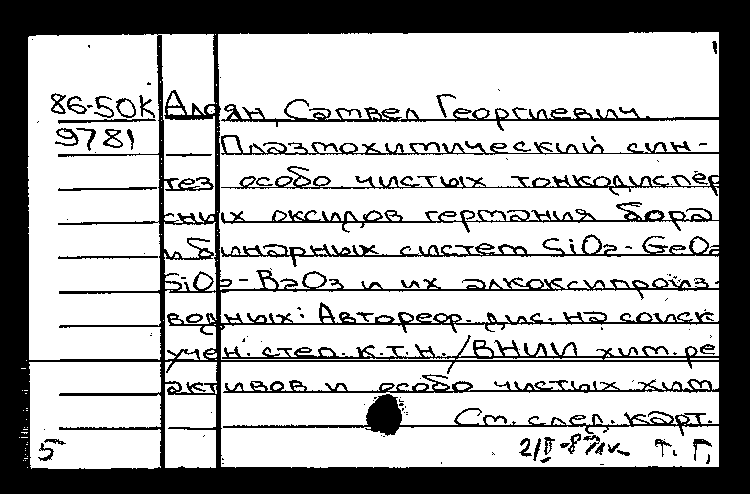 86-50К Алоян, Сэтвел Георгиевич.
9781 Плазмохимический син-
тез особо чистых тонкодиспер
сных оксидов германия бора
и бинарных систем SiO2-GeO2
SiO2-B2O3 и их алкоксипроиз-
водных: Автореф. дис. на соиск
учен. степ. к.т.н. / ВНИИ хим. ре
активов и особо чистых хим.
См. след. карт.
5 Т. Г,